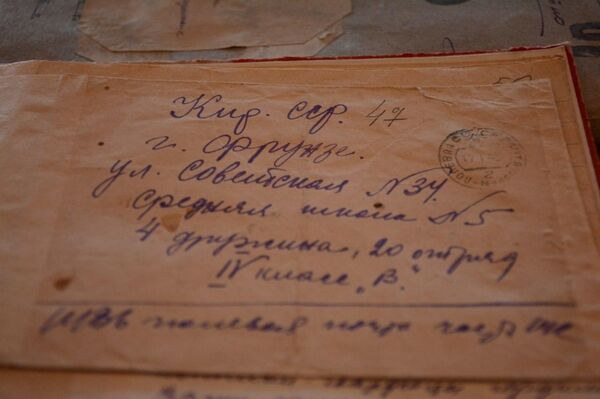 Кир. сср. 47
г. Фрунзе.
ул. Советская N 34.
средняя школа N 5
4 дружина, 20 отряд
IV класс „В."
полевая почта часть